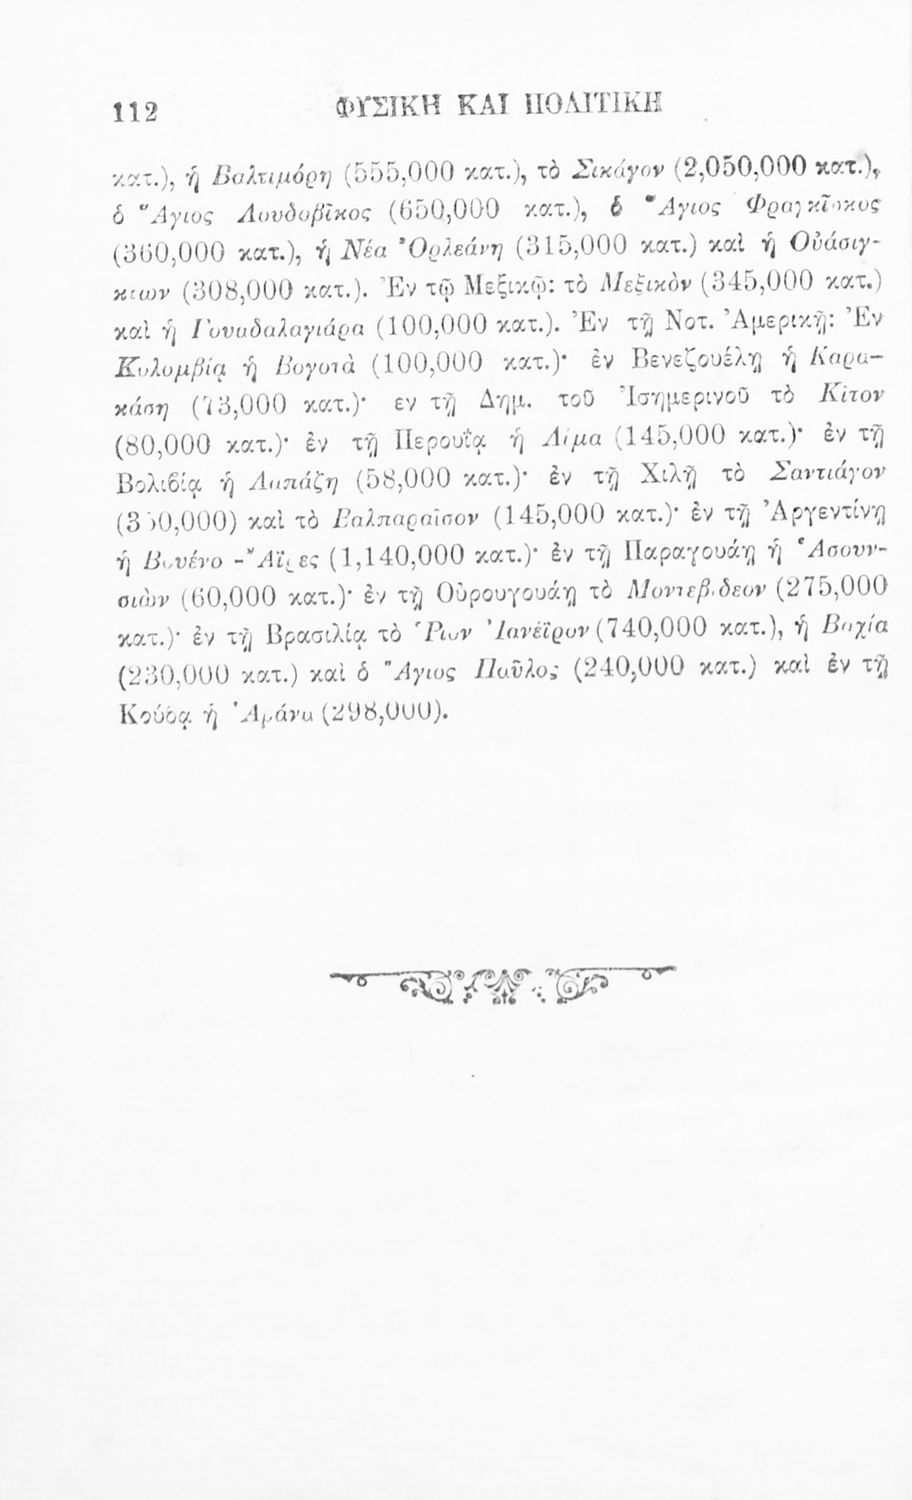 112
ΦΥΣΙΚΗ ΚΑΙ ΠΟΛΙΤΙΚΗ
κατ.), ἡ Βαλτιμόρη (555,000 κατ.), τὸ Σικάγον (2,050,000 κατ.),
ὁ Ἅγιος Λουδοβῖκος (650,000 κατ.), ὁ Ἅγιος Φραγκῖσκος
(360,000 κατ.), ἡ Νέα Ὀρλεάνη (315,000 κατ.) καὶ ἡ Οὐάσιγ-
κτων (308,000 κατ.). Ἐν τῷ Μεξικῷ: τὸ Μεξικὸν (345,000 κατ.)
καὶ ἡ Γουαδαλαγιάρα (100,000 κατ.). Ἐν τῇ Νοτ. Ἀμερικῇ: Ἐν
Κολομβίᾳ ἡ Βογοτὰ (100,000 κατ.)· ἐν Βενεζουέλῃ ἡ Καρα-
κάση (73,000 κατ.)· εν τῇ Δημ. τοῦ Ἰσημερινοῦ τὸ Κίτον
(80,000 κατ.)· ἐν τῇ Περουΐᾳ ἡ Λίμα (145,000 κατ.)· ἐν τῇ
Βολιβίᾳ ἡ Λαπάζη (58,000 κατ.)· ἐν τῇ Χιλῇ τὸ Σαντιάγον
καὶ τὸ Βαλπαραῖσον (145,000 κατ.)· ἐν τῇ Ἀργεντίνῃ
ἡ Βουένο-Ἄϊρες (1,140,000 κατ.)· ἐν τῇ Παραγουάῃ ἡ Ἁσουν-
σιὼν (60,000 κατ.)· ἐν τῇ Οὐρουγουάῃ τὸ Μοντεβιδεον (275,000
κατ.)· ἐν τῇ Βρασιλίᾳ τὸ Ῥίον Ἰανέϊρον (740,000 κατ.), ἡ Βαχία
(230,000 κατ.) καὶ ὁ Ἅγιος Παῦλος (240,000 κατ.) καὶ ἐν τῇ
Κούβᾳ ἡ Ἁβάνα (298,000).